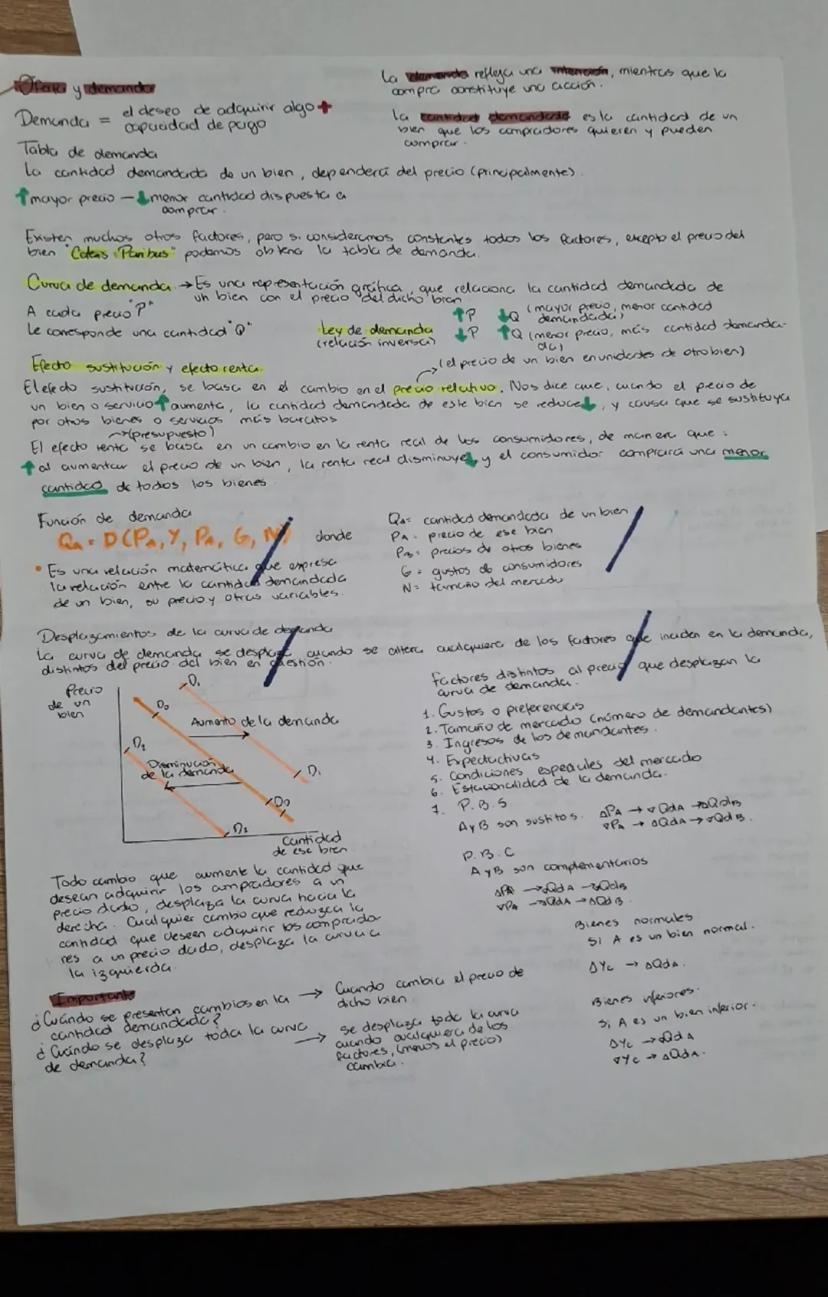 Oferta y demanda
Demanda = el deseo de adquirir algo +
capacidad de pago
La demanda refleja una intención, mientras que la
compra constituye una acción.
la cantidad demandada es la cantidad de un
bien que los compradores quieren y pueden
comprar.
Tabla de demanda
La cantidad demandada de un bien, dependerá del precio (principalmente).
↑ mayor precio — ↓ menor cantidad dispuesta a
comprar.
Existen muchos otros factores, pero si consideramos constantes todos los factores, excepto el precio del
bien "Ceteris Paribus" podemos obtener la tabla de demanda.
Curva de demanda → Es una representación gráfica, que relaciona la cantidad demandada de
un bien con el precio del dicho bien
A cada precio "P"
Le corresponde una cantidad "Q"
Ley de demanda
(relación inversa)
↑P ↓Q (mayor precio, menor cantidad
demandada)
↓P ↑Q (menor precio, más cantidad demanda-
da)
Efecto sustitución y efecto renta.
(el precio de un bien en unidades de otro bien)
El efecto sustitución, se basa en el cambio en el precio relativo. Nos dice que, cuando el precio de
un bien o servicio ↑ aumenta, la cantidad demandada de este bien se reduce ↓, y causa que se sustituya
por otros bienes o servicios más baratos
→ (presupuesto)
El efecto renta se basa en un cambio en la renta real de los consumidores, de manera que:
↑ al aumentar el precio de un bien, la renta real disminuye ↓ y el consumidor comprará una menor
cantidad de todos los bienes
Función de demanda
QA = D(PA, Y, PB, G, N) donde
• Es una relación matemática que expresa
la relación entre la cantidad demandada
de un bien, su precio y otras variables.
QA= cantidad demandada de un bien
PA = precio de ese bien
PB = precios de otros bienes
G = gustos de consumidores
N= tamaño del mercado
Desplazamientos de la curva de demanda
La curva de demanda se desplaza cuando se altera cualquiera de los factores que inciden en la demanda,
distintos del precio del bien en cuestión.
Precio
de un
bien
D1
D0
D2
Aumento de la demanda
Disminución
de la demanda
D1
D0
D2
Cantidad
de ese bien
Factores distintos al precio que desplazan la
curva de demanda.
1. Gustos o preferencias
2. Tamaño de mercado (número de demandantes)
3. Ingresos de los demandantes.
4. Expectativas
5. Condiciones especiales del mercado
6. Estacionalidad de la demanda.
7. P.B.S
A y B son sustitos. ΔPA → ∇QdA → ΔQdB
∇PA → ΔQdA → ∇QdB.
P.B.C
A y B son complementarios
ΔPA → ∇QdA → ∇QdB
∇PA → ΔQdA → ΔQdB.
Bienes normales
Si A es un bien normal.
ΔYc → ΔQdA.
Bienes inferiores.
Si A es un bien inferior.
ΔYc → ∇QdA
∇Yc → ΔQdA.
Todo cambio que aumente la cantidad que
desean adquirir los compradores a un
precio dado, desplaza la curva hacia la
derecha. Cualquier cambio que reduzca la
cantidad que deseen adquirir los comprado
res a un precio dado, desplaza la curva a
la izquierda.
Importante
¿Cuándo se presentan cambios en la → Cuando cambia el precio de
cantidad demandada? dicho bien.
¿Cuándo se desplaza toda la curva → Se desplaza toda la curva
de demanda? cuando cualquiera de los
factores, (menos el precio)
cambia.